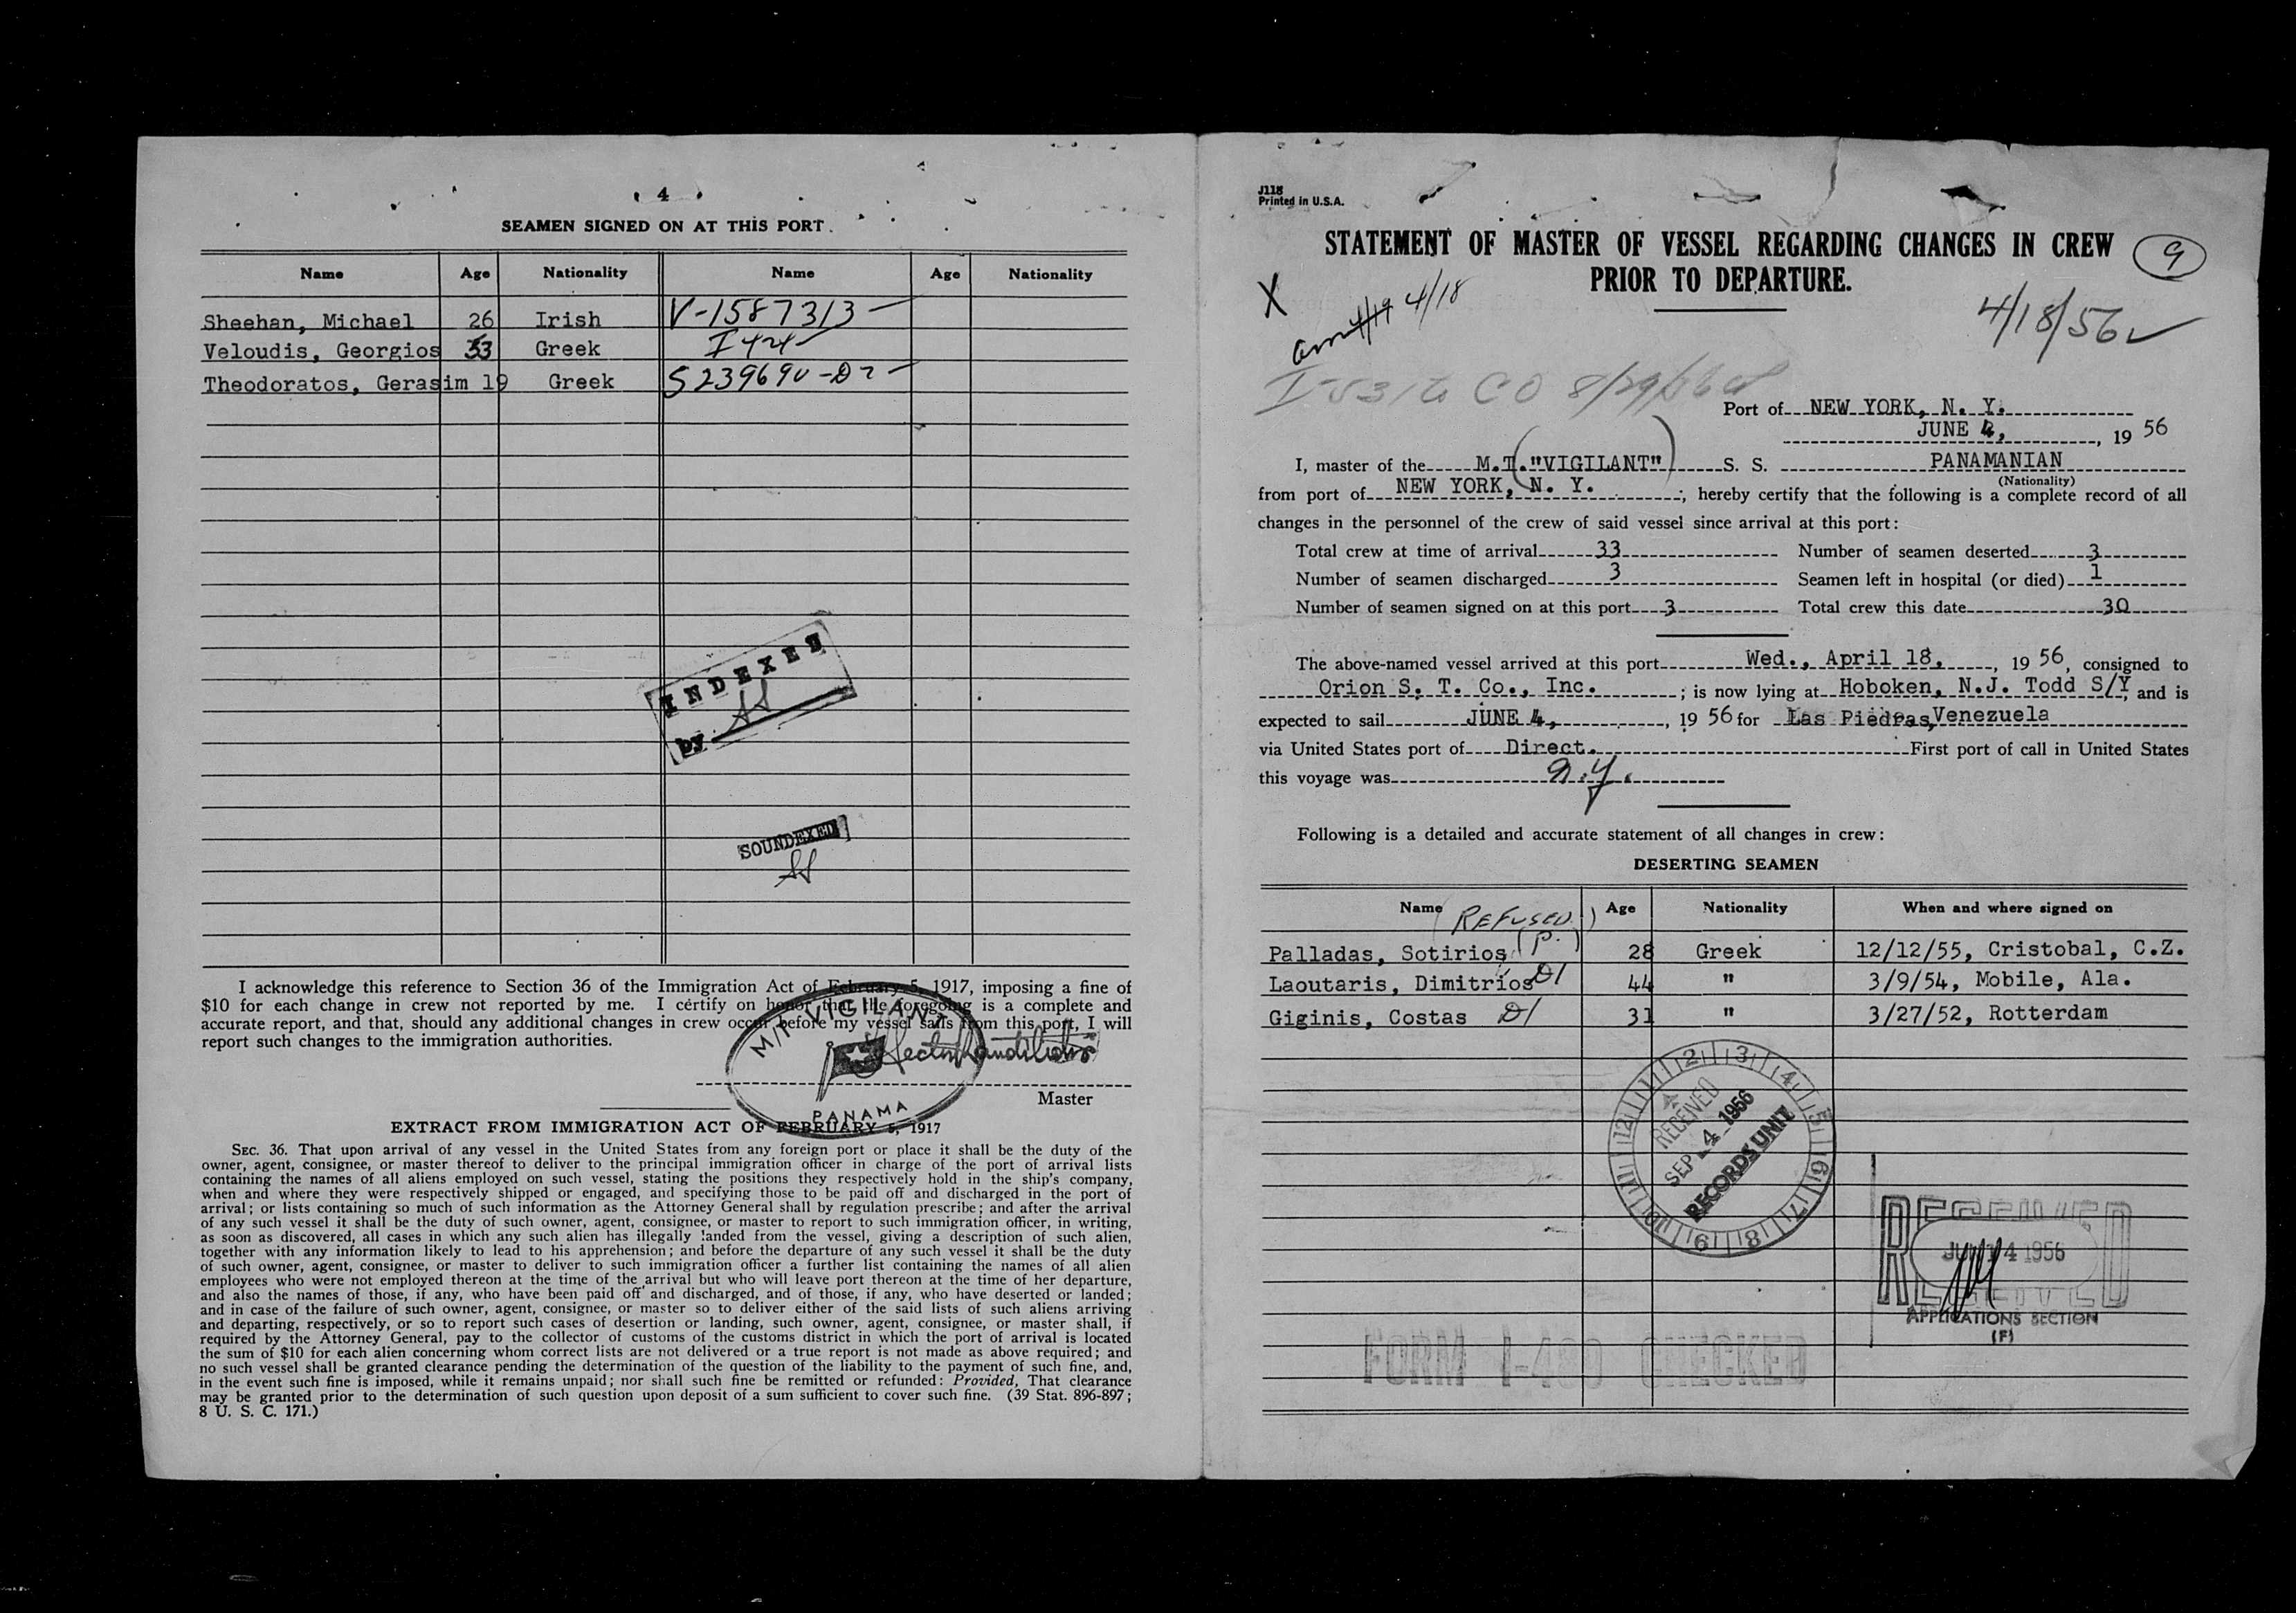 4
SEAMEN SIGNED ON AT THIS PORT.
Name Age Nationality Name Age Nationality
Sheehan, Michael 26 Irish V-1587313
Veloudis, Georgios 53 Greek
Theodoratos, Gerasim 19 Greek
INDEXED
by
SOUNDEXED
I acknowledge this reference to Section 36 of the Immigration Act of February 5, 1917, imposing a fine of
$10 for each change in crew not reported by me. I certify on honor that the foregoing is a complete and
accurate report, and that, should any additional changes in crew occur before my vessel sails from this port, I will
report such changes to the immigration authorities.
VIGILANT
PANAMA
Master
EXTRACT FROM IMMIGRATION ACT OF FEBRUARY 5, 1917
SEC. 36. That upon arrival of any vessel in the United States from any foreign port or place it shall be the duty of the
owner, agent, consignee, or master thereof to deliver to the principal immigration officer in charge of the port of arrival lists
containing the names of all aliens employed on such vessel, stating the positions they respectively hold in the ship's company,
when and where they were respectively shipped or engaged, and specifying those to be paid off and discharged in the port of
arrival; or lists containing so much of such information as the Attorney General shall by regulation prescribe; and after the arrival
of any such vessel it shall be the duty of such owner, agent, consignee, or master to report to such immigration officer, in writing,
as soon as discovered, all cases in which any such alien has illegally landed from the vessel, giving a description of such alien,
together with any information likely to lead to his apprehension; and before the departure of any such vessel it shall be the duty
of such owner, agent, consignee, or master to deliver to such immigration officer a further list containing the names of all alien
employees who were not employed thereon at the time of the arrival but who will leave port thereon at the time of her departure,
and also the names of those, if any, who have been paid off and discharged, and of those, if any, who have deserted or landed;
and in case of the failure of such owner, agent, consignee, or master so to deliver either of the said lists of such aliens arriving
and departing, respectively, or so to report such cases of desertion or landing, such owner, agent, consignee, or master shall, if
required by the Attorney General, pay to the collector of customs of the customs district in which the port of arrival is located
the sum of $10 for each alien concerning whom correct lists are not delivered or a true report is not made as above required; and
no such vessel shall be granted clearance pending the determination of the question of the liability to the payment of such fine, and,
in the event such fine is imposed, while it remains unpaid; nor shall such fine be remitted or refunded: Provided, That clearance
may be granted prior to the determination of such question upon deposit of a sum sufficient to cover such fine. (39 Stat. 896-897;
8 U. S. C. 171.)
J118
Printed in U.S.A.
STATEMENT OF MASTER OF VESSEL REGARDING CHANGES IN CREW
PRIOR TO DEPARTURE.
9
X
4/19 4/18
4/18/56
Port of NEW YORK, N. Y.
JUNE 4, 19 56
I, master of the M.T. "VIGILANT" S. S. PANAMANIAN
(Nationality)
from port of NEW YORK, N. Y. ; hereby certify that the following is a complete record of all
changes in the personnel of the crew of said vessel since arrival at this port:
Total crew at time of arrival 33 Number of seamen deserted 3
Number of seamen discharged 3 Seamen left in hospital (or died) 1
Number of seamen signed on at this port 3 Total crew this date 30
The above-named vessel arrived at this port Wed., April 18, 19 56, consigned to
Orion S. T. Co., Inc. ; is now lying at Hoboken, N.J. Todd S/Y and is
expected to sail JUNE 4, 19 56 for Las Piedras, Venezuela
via United States port of Direct. First port of call in United States
this voyage was n.y.
Following is a detailed and accurate statement of all changes in crew:
DESERTING SEAMEN
Name Age Nationality When and where signed on
REFUSED
Palladas, Sotirios (P.) 28 Greek 12/12/55, Cristobal, C.Z.
Laoutaris, Dimitrios D1 44 " 3/9/54, Mobile, Ala.
Giginis, Costas D1 31 " 3/27/52, Rotterdam
1 2 3 4 5 6 7 8 9 10 11 12
RECEIVED
SEP 4 1956
RECORDS UNIT
RECEIVED
JUN 4 1956
RECEIVED
APPLICATIONS SECTION
(F)
FORM I-480 CHECKED